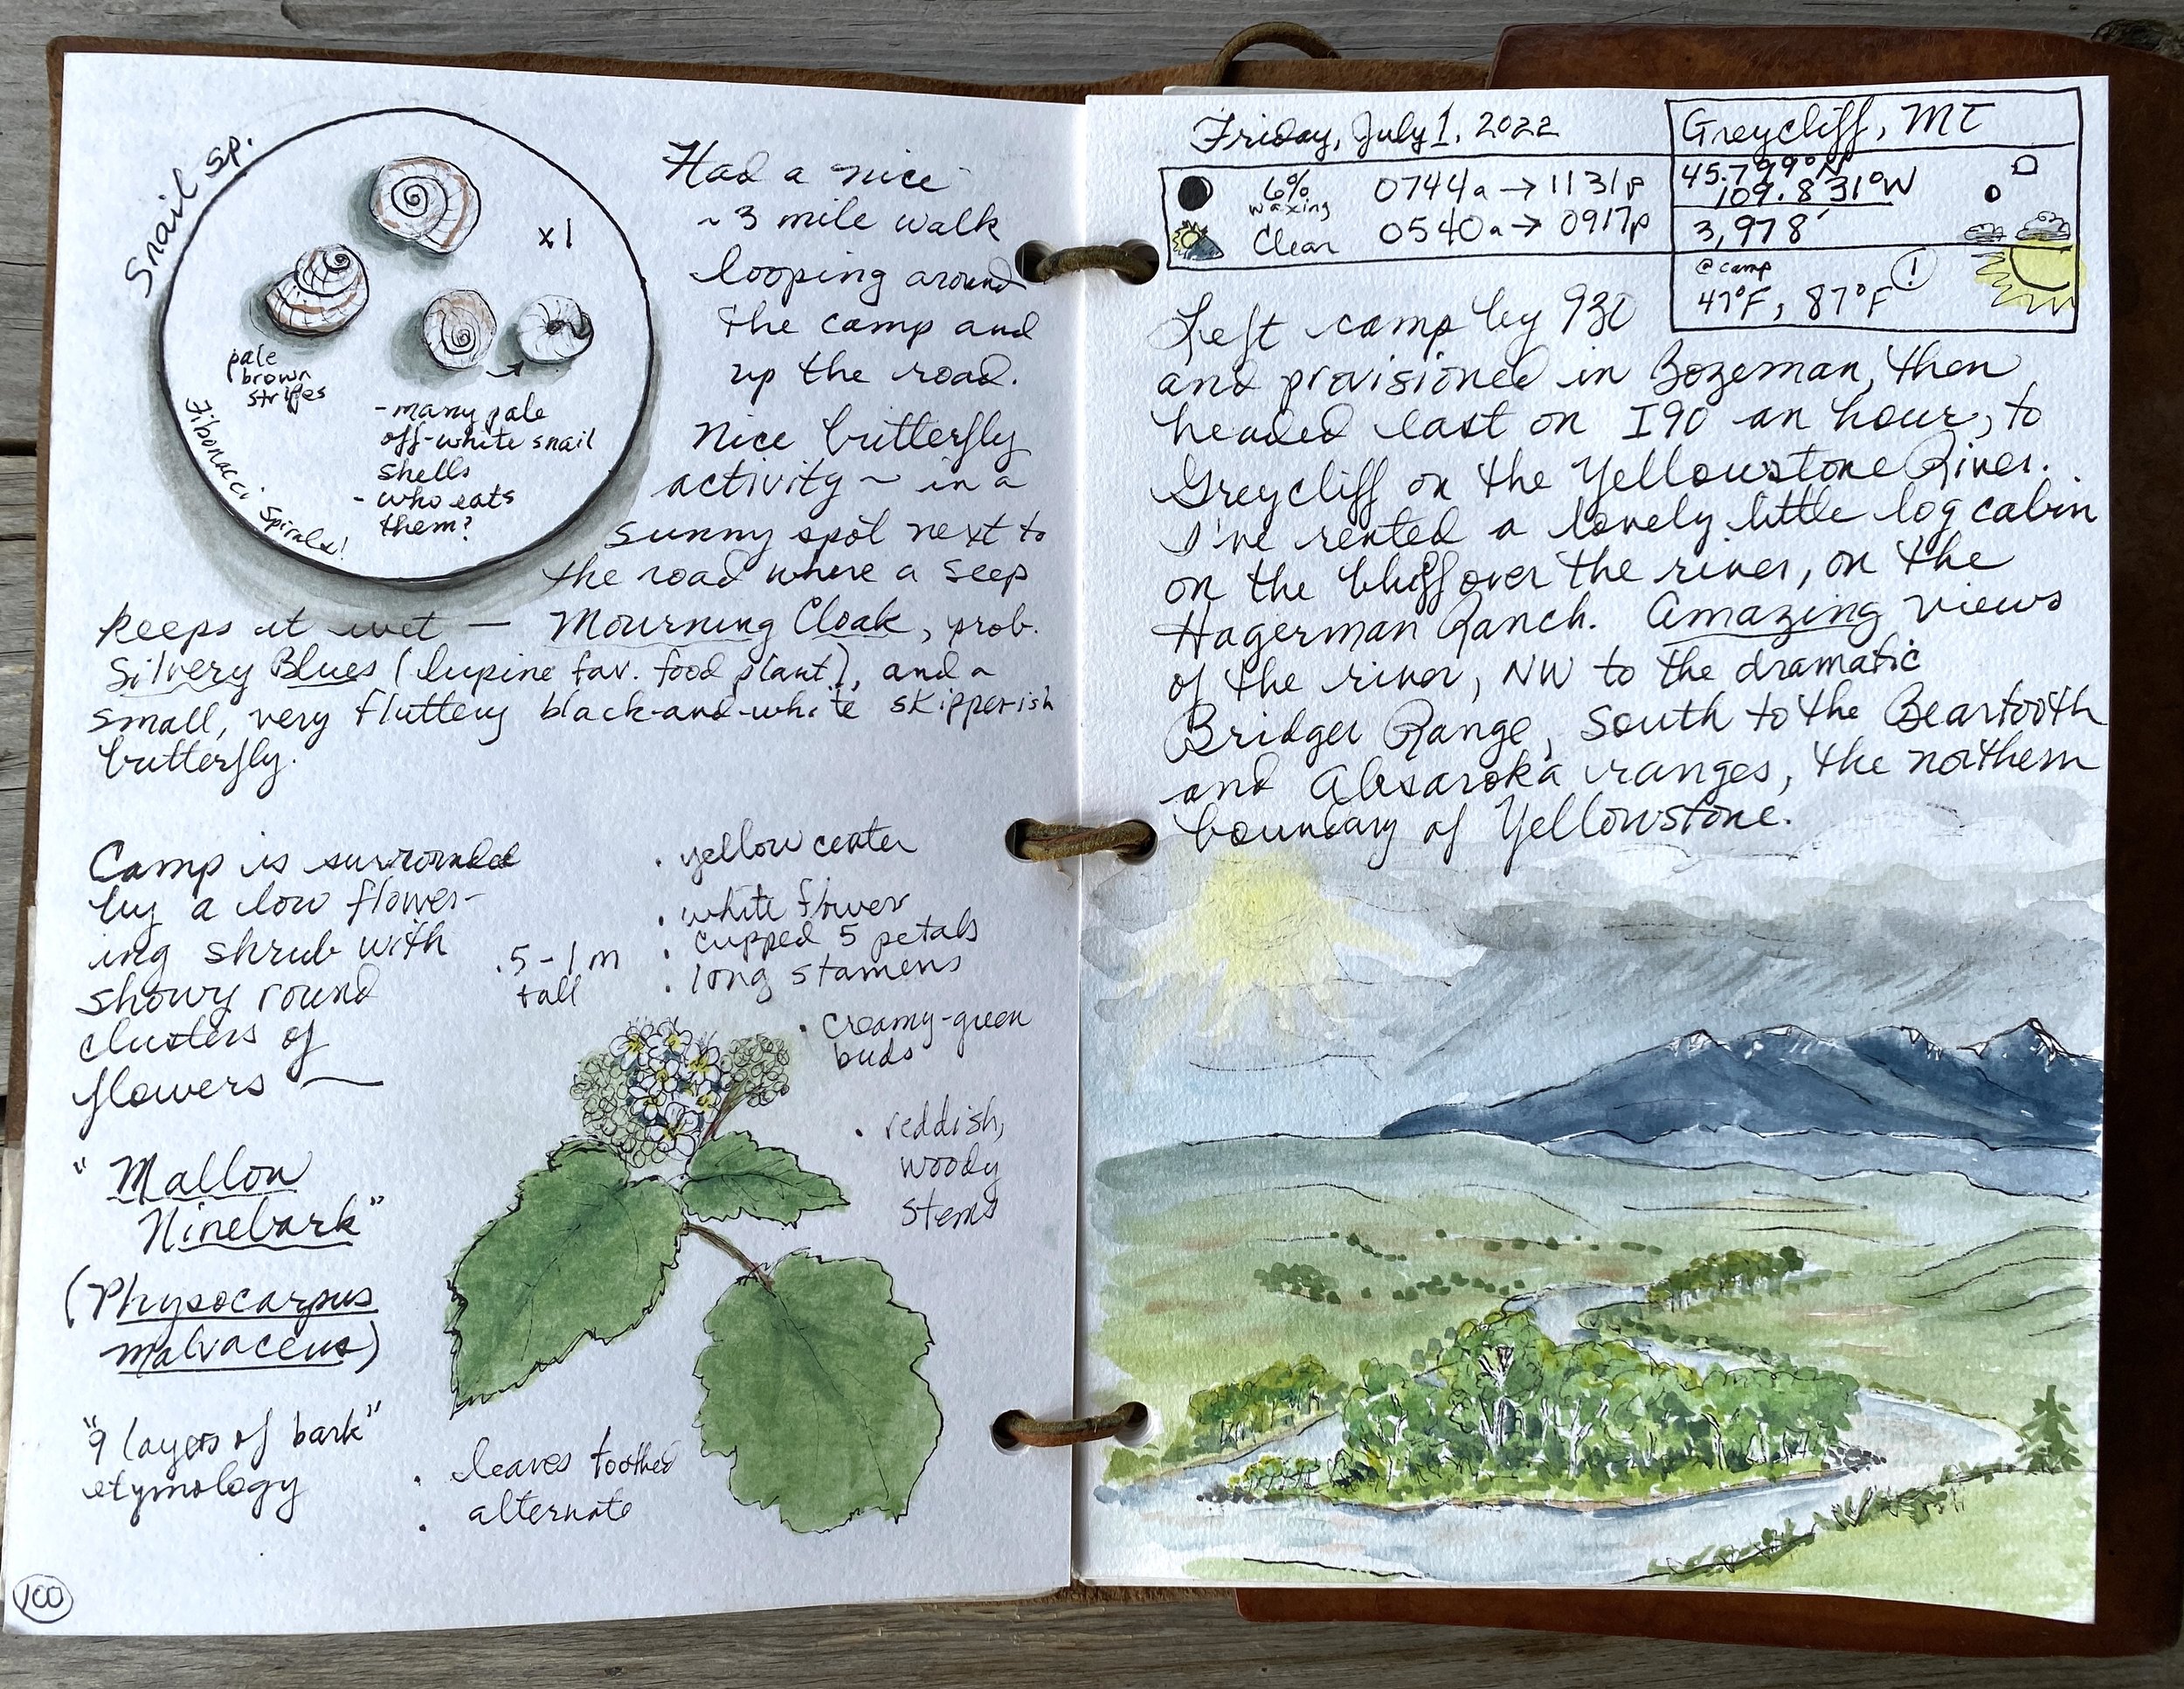 Snail sp.
x1
pale
brown
stripes
Fibonacci Spirals!
-many pale
off-white snail
shells
- who eats
them?
Had a nice
~3 mile walk
looping around
the camp and
up the road.
Nice butterfly
activity ~ in a
sunny spot next to
the road where a seep
keeps it wet — Mourning Cloak, prob.
Silvery Blues (lupine fav. food plant), and a
small, very fluttery black-and-white skipperish
butterfly.
Camp is surrounded
by a low flower-
ing shrub with
showy round
clusters of
flowers —
"Mallow
Ninebark"
(Physocarpus
malvaceus)
"9 layers of bark"
etymology
.5-1m
tall
· yellow center
· white flower
· cupped 5 petals
· long stamens
· creamy-green
buds
· reddish,
woody
stems
· leaves toothed
· alternate
100
Friday, July 1, 2022
6%
waxing
0744a → 1131p
Clear
0540a → 0917p
Greycliff, MT
45.799°N
109.831°W
3,978'
@camp
47°F, 87°F !
Left camp by 930
and provisioned in Bozeman, then
headed east on I90 an hour, to
Greycliff on the Yellowstone River.
I've rented a lovely little log cabin
on the bluff over the river, on the
Hagerman Ranch. Amazing views
of the river, NW to the dramatic
Bridger Range, South to the Beartooth
and Absaroka ranges, the northern
boundary of Yellowstone.